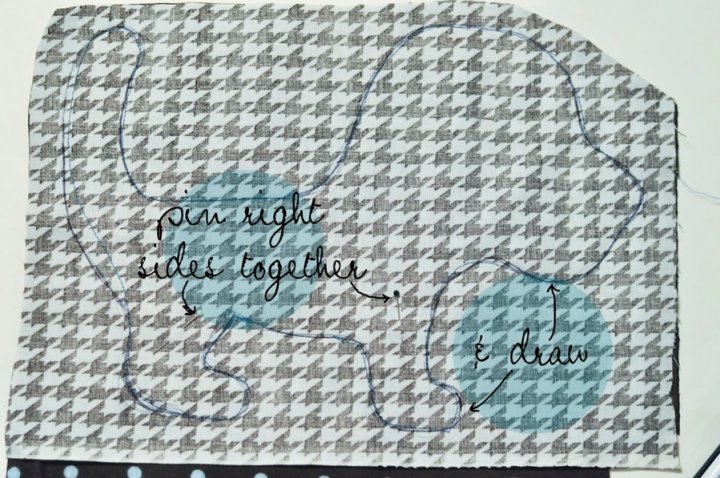 pin right
sides together
& draw